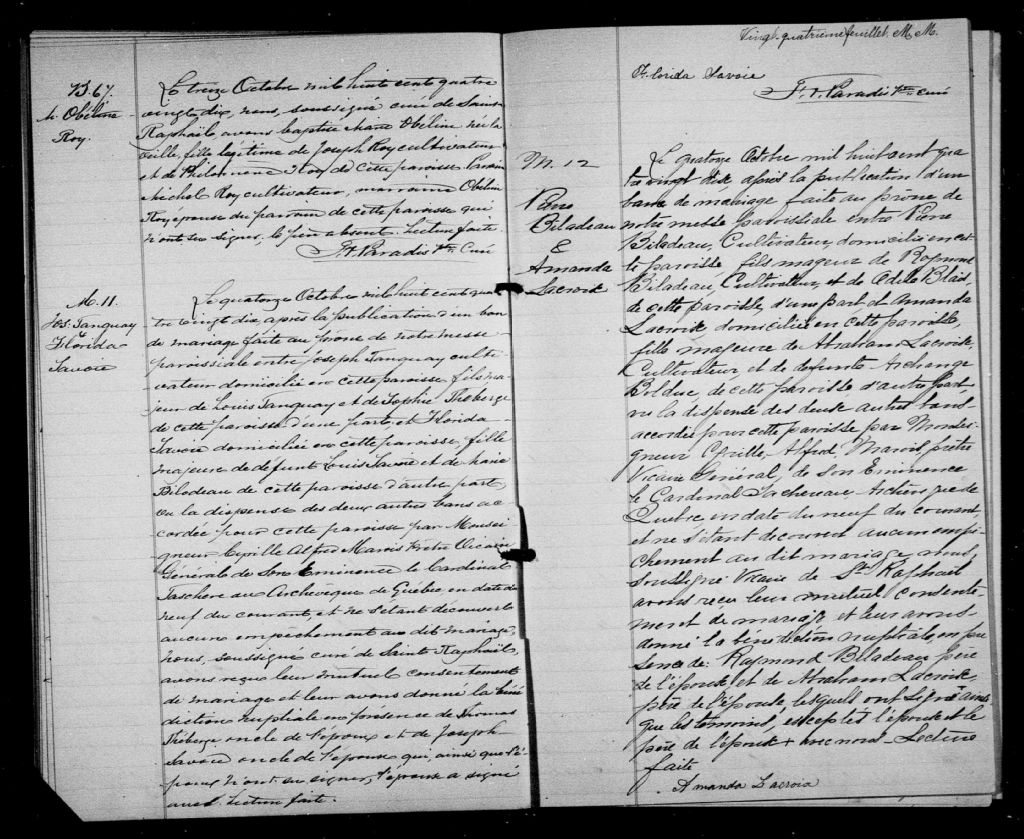 B. 67.
M. Obéline
Roy.
Le treize Octobre mil huit cent quatre
vingt dix, nous, soussigné curé de Saint
Raphaël, avons baptisé Marie Obéline née la
veille, fille légitime de Joseph Roy cultivateur
et de Philomène Roy de cette paroisse. Parrain
Michel Roy cultivateur, marraine Obéline
Roy épouse du parrain de cette paroisse qui
n'ont su signer, le père absent. Lecture faite.
F. X. Paradis Ptre Curé
M. 11.
Jos. Tanguay
&
Florida
Savoie
Le quatorze Octobre mil huit cent qua
tre vingt dix, après la publication d'un ban
de mariage faite au prône de notre messe
paroissiale entre Joseph Tanguay culti-
vateur domicilié en cette paroisse, fils ma-
jeur de Louis Tanguay et de Sophie Théberge
de cette paroisse d'une part, et Florida
Savoie domiciliée en cette paroisse, fille
majeure de defunt Louis Savoie et de Marie
Bilodeau de cette paroisse d'autre part,
vu la dispense des deux autres bans ac-
cordée pour cette paroisse par Monsei
gneur Cyrille Alfred Marois Prêtre Vicaire
Générale de Son Eminence le Cardinal
Taschereau Archevêque de Québec en date du
neuf du courant, et ne s'étant découvert
aucun empêchement au dit mariage,
nous, soussigné curé de Saint Raphaël,
avons reçu leur mutuel consentement
de mariage et leur avons donné la béné
diction nuptiale en présence de Thomas
Théberge oncle de l'époux et de Joseph
Savoie oncle de l'épouse qui, ainsi que l'é-
poux n'ont su signer, l'épouse a signé
avec Lecture faite.
Vingt-quatrième feuillet. M. M.
Florida Savoie
F. X. Paradis Ptre Curé
M. 12
Pierre
Biladeau
&
Amanda
Lacroix
Le quatorze Octobre mil huit cent qua
tre vingt dix après la publication d'un
banc de mariage faite au prône de
notre messe paroissiale entre Pierre
Biladeau, Cultivateur, domicilié en cet-
te paroisse, fils majeur de Raymond
Biladeau, Cultivateur, et de Odile Blais,
de cette paroisse, d'une part et Amanda
Lacroix, domiciliée en cette paroisse,
fille majeure de Abraham Lacroix,
Cultivateur et de defunte Archange
Bolduc, de cette paroisse d'autre part,
vu la dispense des deux autres bans
accordée pour cette paroisse par Monsei
gneur Cyrille Alfred Marois prêtre
Vicaire Général, de son Eminence
le Cardinal Tachereau, Archevêque de
Québec en date du neuf du courant,
et ne s'étant découvert aucun empê-
chement au dit mariage, nous,
soussigné Vicaire de St Raphaël
avons reçu leur mutuel consente-
ment de mariage et leur avons
donné la bénédiction nuptiale en pré
sence de Raymond Biladeau père
de l'époux et de Abraham Lacroix,
père de l'épouse, lesquels ont signé ainsi
que les témoins, excepté l'époux et le
père de l'époux + avec nous. Lecture
faite
Amanda Lacroix